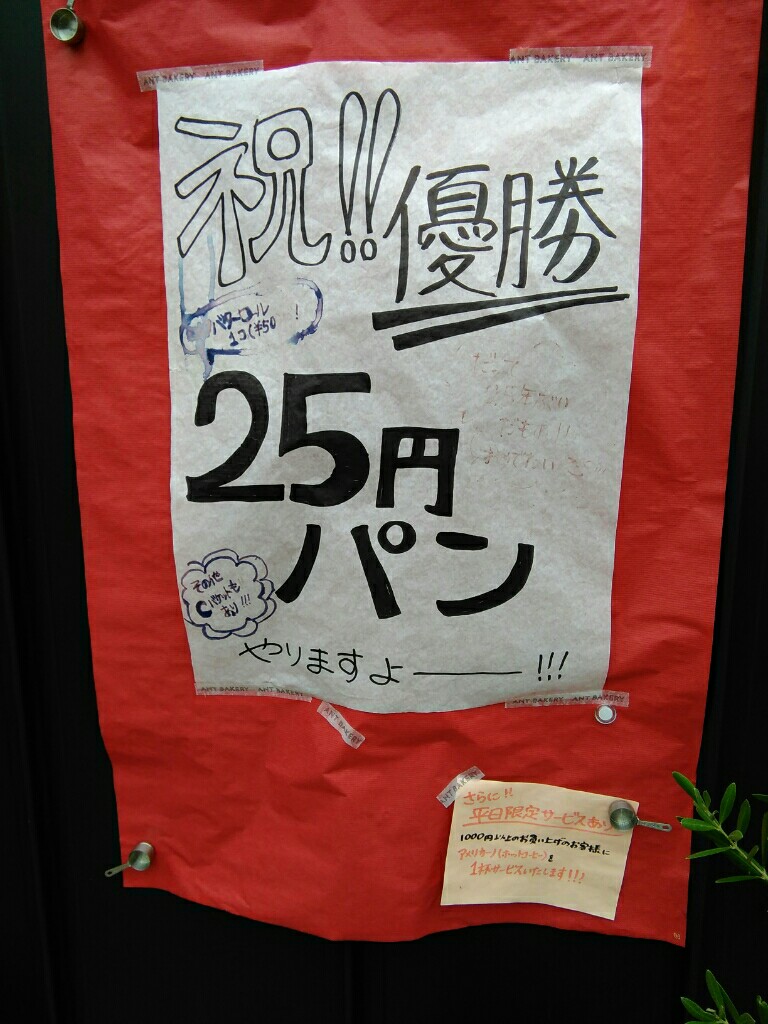 ANT BAKERY ANT BAKERY
ANT BAKERY ANT BAKERY
祝!! 優勝
バターロール
1コ¥50 !
だって
25円
パン
その他
バケットも
あり!!!
やりますよ――!!!
ANT BAKERY ANT BAKERY
ANT BAKERY ANT BAKERY
ANT BAKERY
ANT BAKERY
さらに!!
平日限定サービスあり
1000円以上のお買い上げのお客様に
アメリカーノ(ホットコーヒー)を
1杯サービスいたします!!!